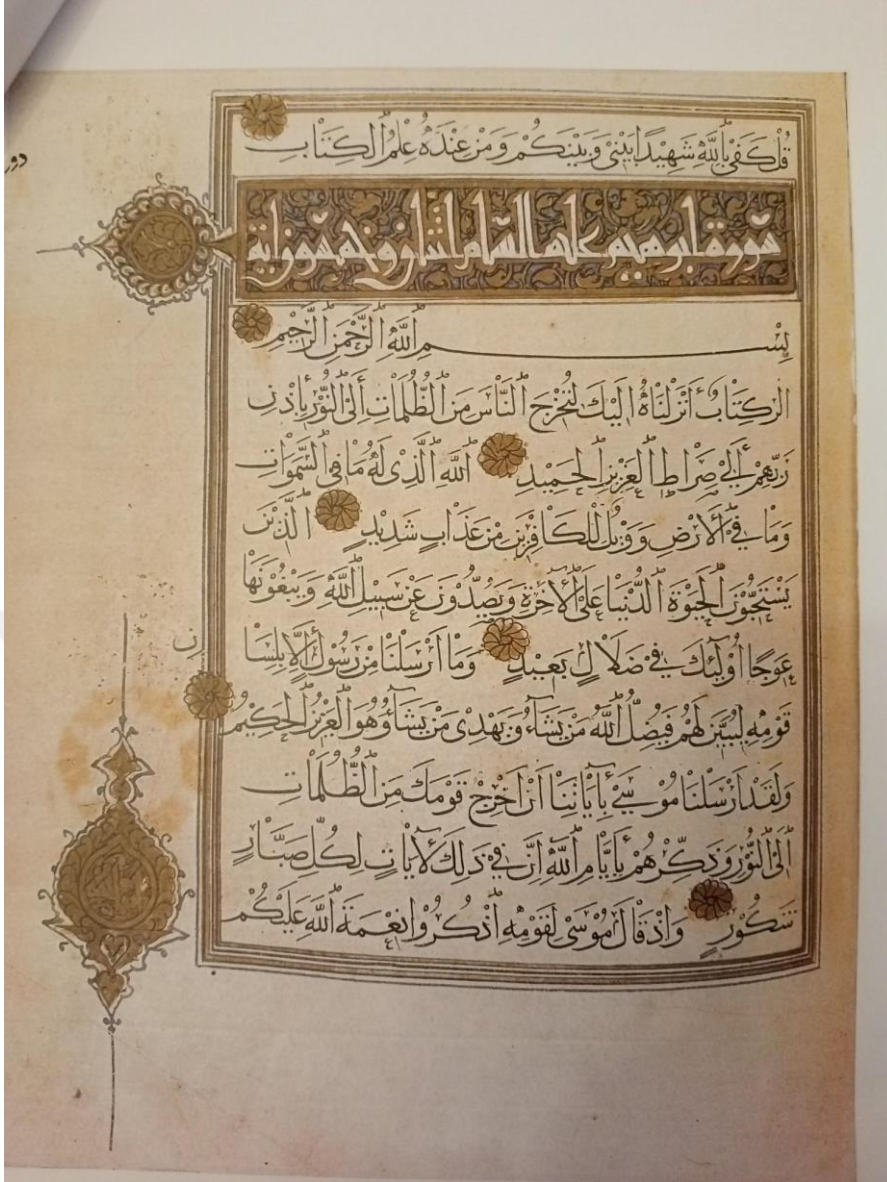 قُلْ كَفَىٰ بِاللَّهِ شَهِيدًا بَيْنِي وَبَيْنَكُمْ وَمَنْ عِنْدَهُ عِلْمُ الْكِتَابِ
سورة ابرهيم عليه السلام اثنان وخمسون اية
بِسْمِ اللَّهِ الرَّحْمَنِ الرَّحِيمِ
الر كِتَابٌ أَنْزَلْنَاهُ إِلَيْكَ لِتُخْرِجَ النَّاسَ مِنَ الظُّلُمَاتِ إِلَى النُّورِ بِإِذْنِ
رَبِّهِمْ إِلَى صِرَاطِ الْعَزِيزِ الْحَمِيدِ اللَّهِ الَّذِي لَهُ مَا فِي السَّمَوَاتِ
وَمَا فِي الْأَرْضِ وَوَيْلٌ لِلْكَافِرِينَ مِنْ عَذَابٍ شَدِيدٍ الَّذِينَ
يَسْتَحِبُّونَ الْحَيَوةَ الدُّنْيَا عَلَى الْآخِرَةِ وَيَصُدُّونَ عَنْ سَبِيلِ اللَّهِ وَيَبْغُونَهَا
عِوَجًا أُولَئِكَ فِي ضَلَالٍ بَعِيدٍ وَمَا أَرْسَلْنَا مِنْ رَسُولٍ إِلَّا بِلِسَا
نِ
قَوْمِهِ لِيُبَيِّنَ لَهُمْ فَيُضِلُّ اللَّهُ مَنْ يَشَاءُ وَيَهْدِي مَنْ يَشَاءُ وَهُوَ الْعَزِيزُ الْحَكِيمُ
وَلَقَدْ أَرْسَلْنَا مُوسَى بِآيَاتِنَا أَنْ أَخْرِجْ قَوْمَكَ مِنَ الظُّلُمَاتِ
إِلَى النُّورِ وَذَكِّرْهُمْ بِأَيَّامِ اللَّهِ إِنَّ فِي ذَلِكَ لَآيَاتٍ لِكُلِّ صَبَّارٍ
شَكُورٍ وَإِذْ قَالَ مُوسَى لِقَوْمِهِ اذْكُرُوا نِعْمَةَ اللَّهِ عَلَيْكُمْ